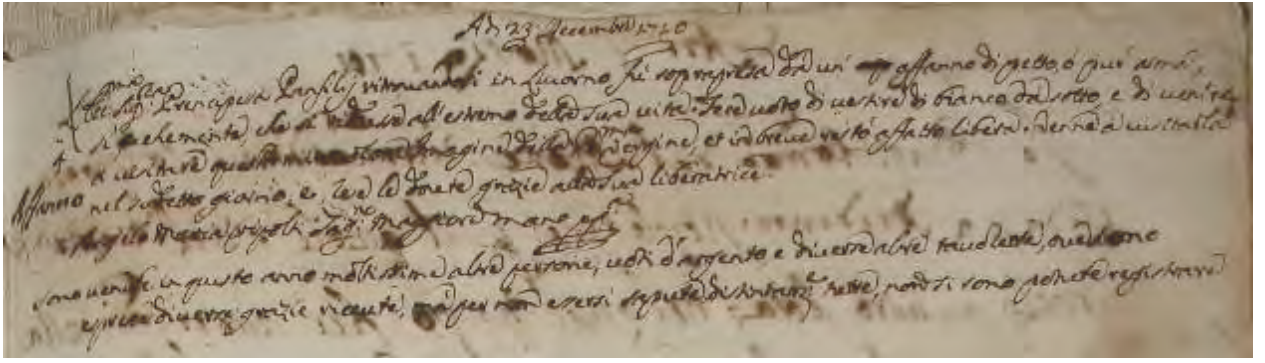 Adi 23 Decembre 1710
La Sig.ra Prencipessa Panfilij ritrovandosi in Livorno fu sorpresa da un affanno di petto, ò pur asma,
si vehemente, che si ridusse all'estremo della sua vita. Fece voto di vestire di bianco da sotto, e di venire
a visitare questa miracolosa Imagine della Vergine, et in breve restò affatto libera. Venne à visitarla
Affanno nel sudetto giorno, e rese le dovute grazie alla sua liberatrice.
Angelo Maria Sag.no Maggiore mano pp.a
Sono venute in questo anno moltissime altre persone, voti d'argento, e diverse altre tavolette, quali sono
espresse diverse grazie ricevute, mà per non essersi sapute distintam.te tutte, non si sono potute registrare